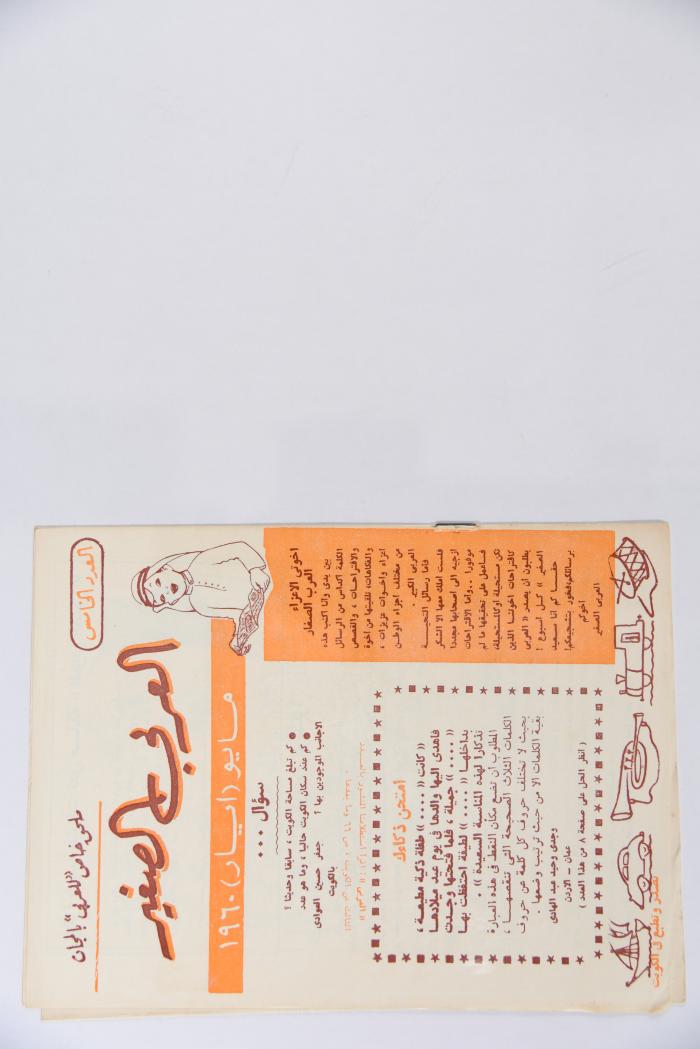 ملحق خاص "للعربى" بالمجان
العدد الخامس
العربى الصغير
مايو (أيار) ١٩٦٠
اخوتى الاعزاء
العرب الصغار
بين يدى وأنا اكتب هذه
الكلمة أكداس من الرسائل
والاقتراحات ، والقصص
والفكاهات، تلقيتها من اخوة
اعزاء واخوات عزيزات ،
من مختلف اجزاء الوطن
العربى الكبير .
فأما رسائل التحية
فلست املك معها الا الشكر
ازجيه الى اصحابها مجددا
موفورا .. وأما الاقتراحات
فسأعمل على تحقيقها ما لم
تكن مستحيلة أو كالمستحيلة،
كاقتراحات اخوتنا الذين
يطلبون أن يصدر « العربى
الصغير » كل اسبوع !
حقا كم انا سعيد
برسائلكم، فخور بتشجيعكم!
اخوكم
العربى الصغير
سؤال ...
● كم تبلغ مساحة الكويت ، سابقا وحديثا ؟
● كم عدد سكان الكويت حاليا ، وما هو عدد
الاجانب الموجودين بها ؟
جعفر حسين العوادى
بالكويت
امتحن ذكاءك
« كانت « .... » طفلة ذكية مطيعة ،
فأهدى اليها والدها فى يوم عيد ميلادها
« .... » جميلة ، فلما فتحتها وجدت
بداخلها « .... » لطيفة احتفظت بها
تذكارا لهذه المناسبة السعيدة » .
المطلوب أن تضع مكان النقط فى هذه العبارة
الكلمات الثلاث الصحيحة التى تنقصها ،
بحيث لا تختلف حروف كل كلمة عن حروف
بقية الكلمات الا من حيث ترتيب وضعها .
وجدى وحيد عبد الهادى
عمان - الاردن
( انظر الحل على صفحة ٨ من هذا العدد )
تصدر وتطبع فى الكويت